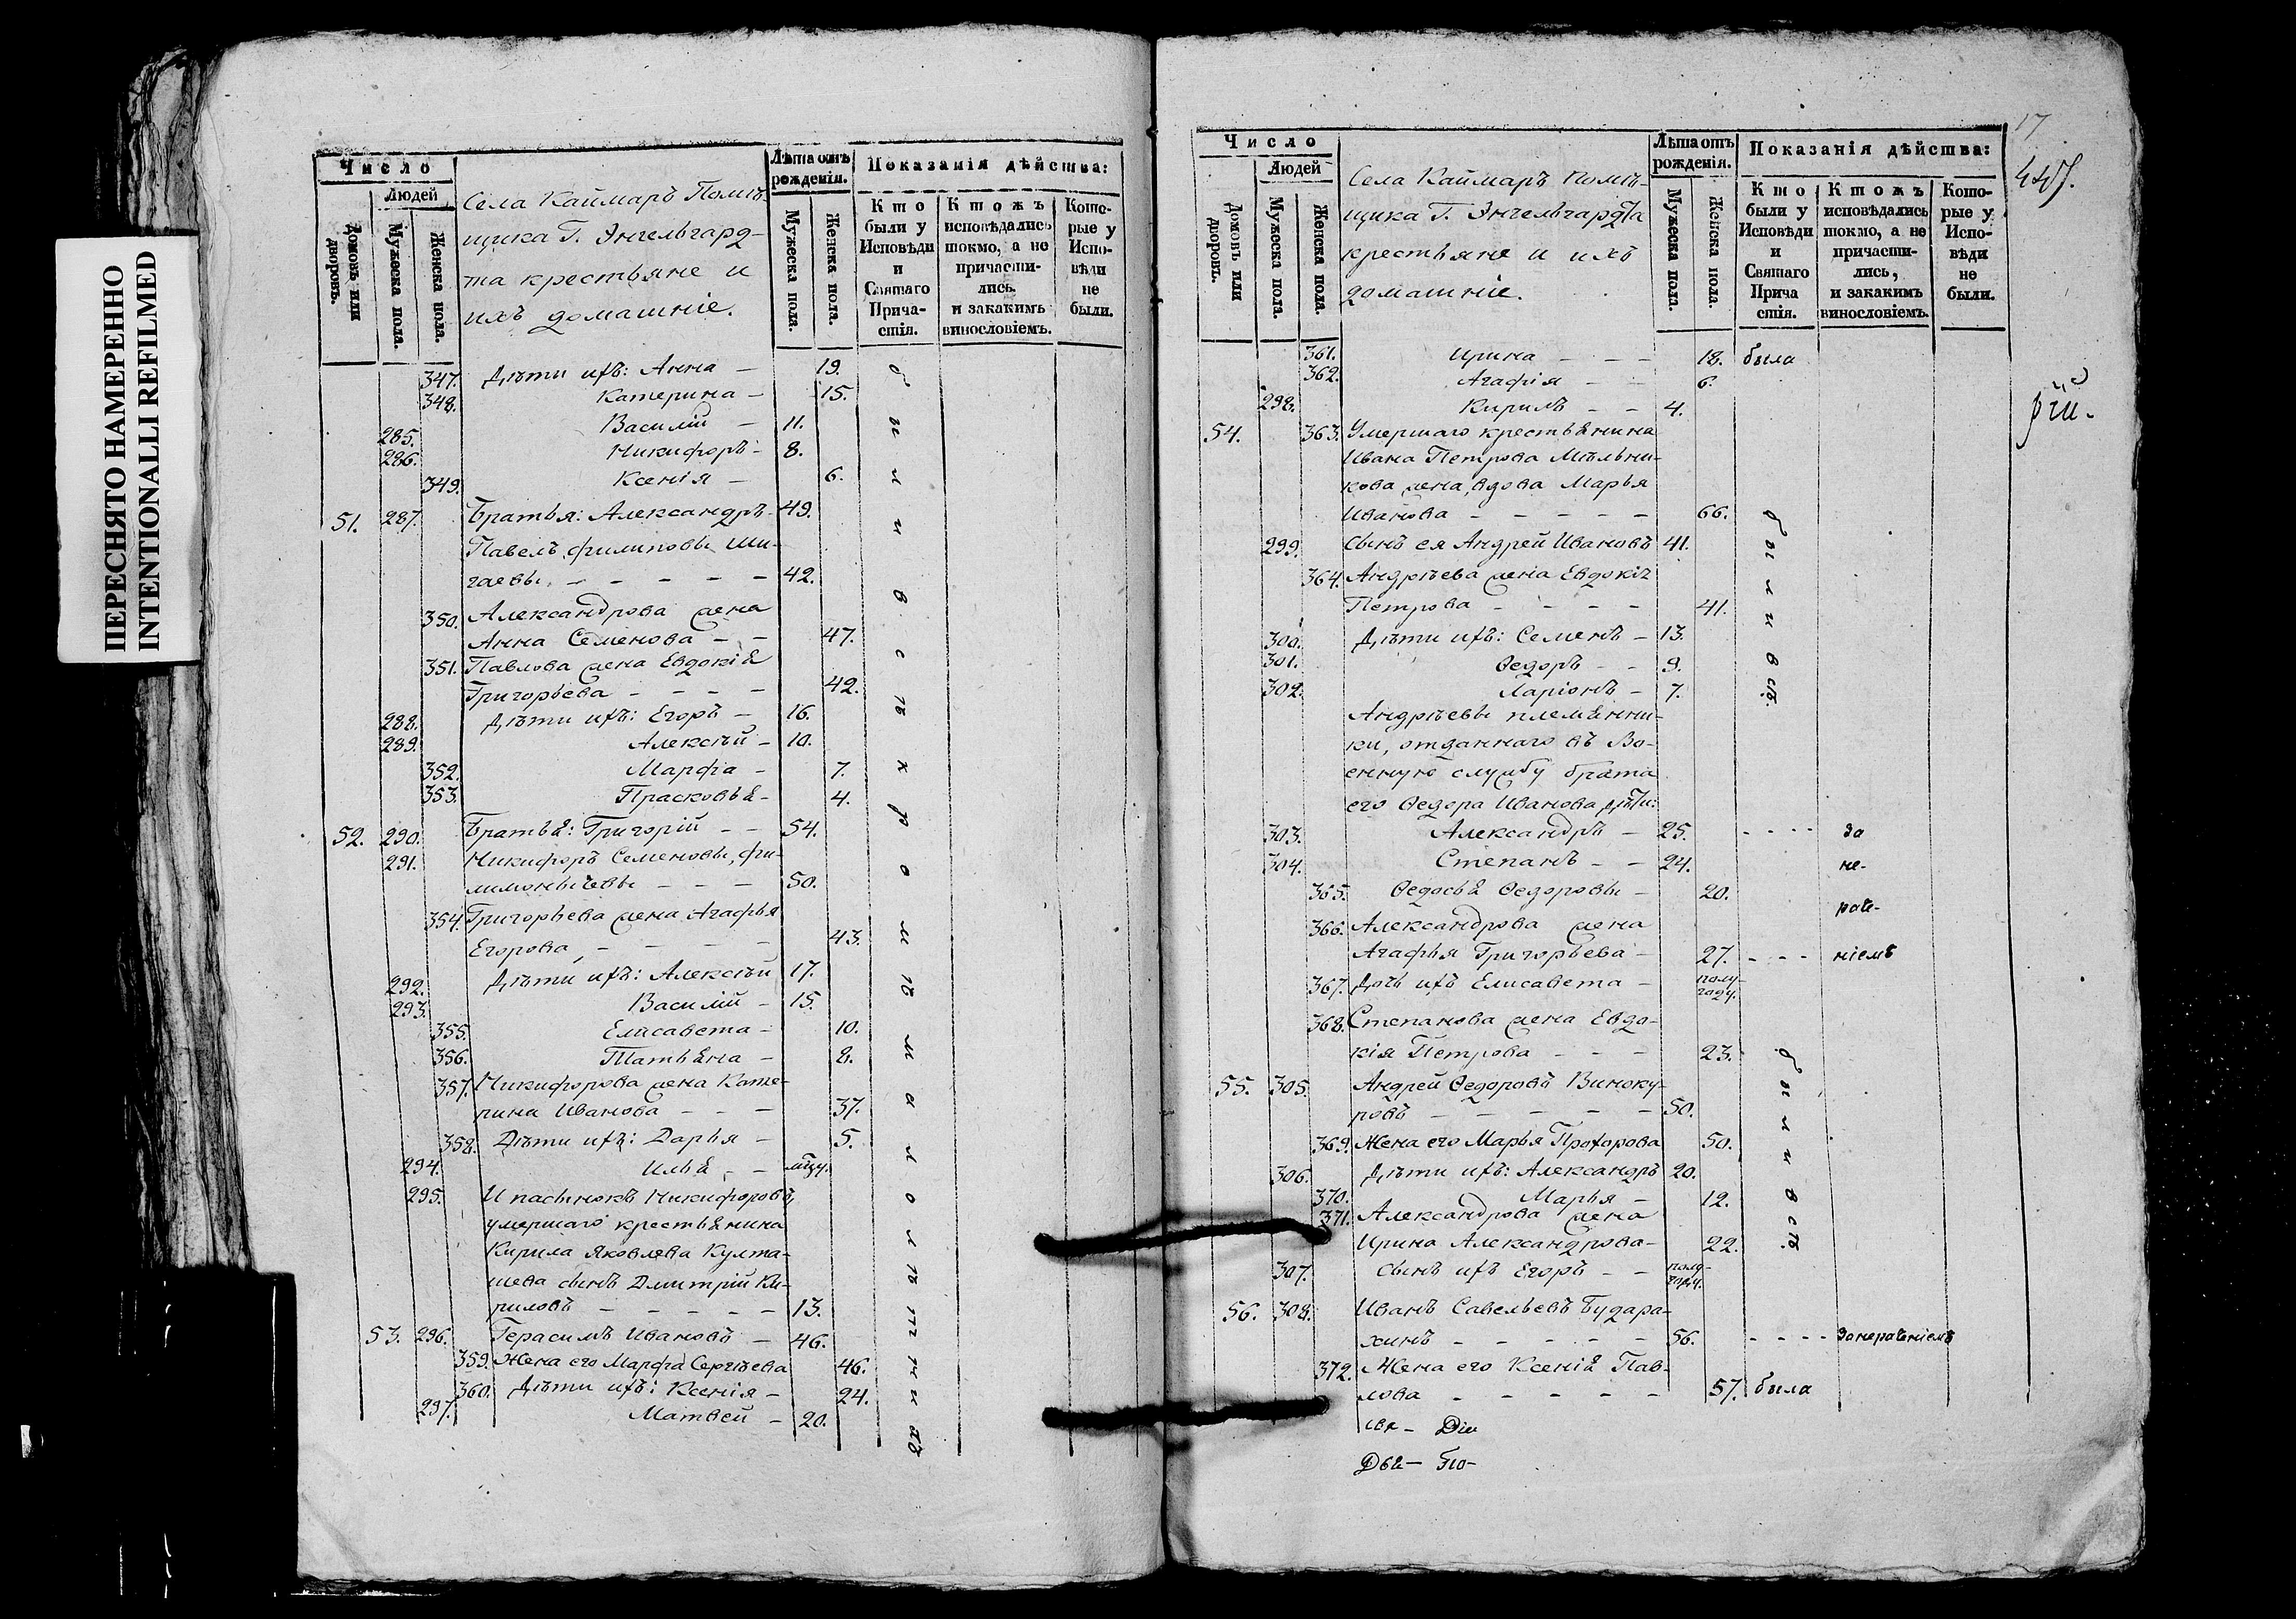 ПЕРЕСНЯТО НАМЕРЕННО
INTENTIONALLI REFILMED
Число
Людей
Домовъ или дворовъ.
Мужеска пола.
Женска пола.
Села Каймаръ Помѣ-
щика Г. Энгельгард-
та крестьяне и
ихъ домашніе.
Лѣта отъ рожденія.
Мужеска пола.
Женска пола.
Показанія дѣйства:
Кто были у Исповѣди и Святаго Прича-стія.
Ктожъ исповѣдались токмо, а не причасти-лись. и закакимъ винословіемъ.
Кото-рые у Испо-вѣди не были.
347. Дѣти ихъ: Анна – 19.
348. Катерина – 15.
285. Василій – 11.
286. Никифоръ – 8.
349. Ксенія – 6.
51. 287. Братья: Александръ 49.
Павелъ, Филиповы Ши-
гаевы, – – – – – 42.
350. Александрова жена
Анна Семенова – – 47.
351. Павлова жена Евдокія
Григорьева – – – – 42.
288. Дѣти ихъ: Егоръ – 16.
289. Алексѣй – 10.
352. Марфа – 7.
353. Прасковья – 4.
52. 290. Братья: Григорій – – 54.
291. Никифоръ Семеновы, Фи-
лимонычевы – – – 50.
354. Григорьева жена Агафья
Егорова, – – – – 43.
292. Дѣти ихъ: Алексѣй 17.
293. Василій – 15.
355. Елисавета – 10.
356. Татьяна – 8.
357. Никифорова жена Кате-
рина Иванова – – – 37.
358. Дѣти ихъ: Дарья – 5.
294. Илья – –
295. И пасынокъ Никифоровъ,
умершаго крестьянина
Кирила Яковлева Култа-
шева сынъ Дмитрій Ки-
риловъ – – – – – 13.
53. 296. Герасимъ Ивановъ – 46.
359. Жена его Марфа Сергѣева 46.
360. Дѣти ихъ: Ксенія – 24.
297. Матвей – 20.
были всѣ кромѣ малолѣтныхъ
17
447.
Число
Людей
Домовъ или дворовъ.
Мужеска пола.
Женска пола.
Села Каймаръ Помѣ-
щика Г. Энгельгардта
крестьяне и ихъ
домашніе.
Лѣта отъ рожденія.
Мужеска пола.
Женска пола.
Показанія дѣйства:
Кто были у Исповѣди и Святаго Прича стія.
Ктожъ исповѣдались токмо, а не причасти-лись, и закакимъ винословіемъ.
Кото-рые у Испо-вѣди не были.
361. Ирина – – – 18. была
362. Агафія – – 6.
298. Кирилъ – – 4.
54. 363. Умершаго крестьянина
Ивана Петрова Мѣльни-
кова жена, вдова Марья
Иванова – – – – – 66.
299. Сынъ ея Андрей Ивановъ 41.
364. Андрѣева жена Евдокія
Петрова – – – – 41.
300. Дѣти ихъ: Семенъ – 13.
301. Ѳедоръ – – 9.
302. Ларіонъ – 7.
были всѣ.
Андрѣевы племянни-
ки, отданнаго въ Во-
енную службу брата
его Ѳедора Иванова дѣти:
303. Александръ – 25. - - - - за
304. Степанъ – – 24. не-
365. Ѳедосья Ѳедоровы – 20.
раче-
366. Александрова жена
Агафья Григорьева – 27. - - - ніемъ
367. Дочь ихъ Елисавета – полу-
году.
368. Степанова жена Евдо-
кія Петрова – – – 23.
55. 305. Андрей Ѳедоровъ Виноку-
ровъ – – – – – 50.
369. Жена его Марья Прохорова 50.
306. Дѣти ихъ: Александръ 20.
370. Марья – 12.
371. Александрова жена
Ирина Александрова – 22.
307. Сынъ ихъ Егоръ – – полу-
году.
были всѣ.
56. 308. Иванъ Савельевъ Будара-
хинъ – – – – – 56. - - - - занераченіемъ
372. Жена его Ксенія Пав-
лова – – – – – 57. была